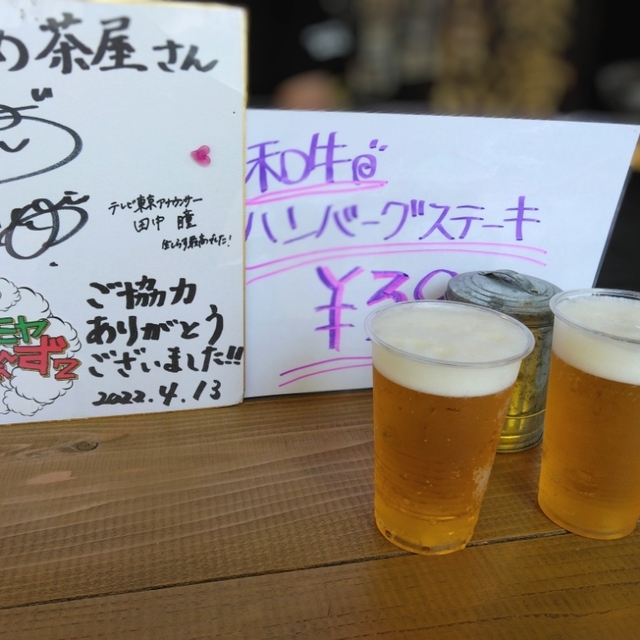 め茶屋さん
テレビ東京アナウンサー
田中 瞳
ご協力
ありがとう
ございました!!
2022.4.13
モヤ
さまぁ〜ず2
和牛
ハンバーグステーキ
¥30